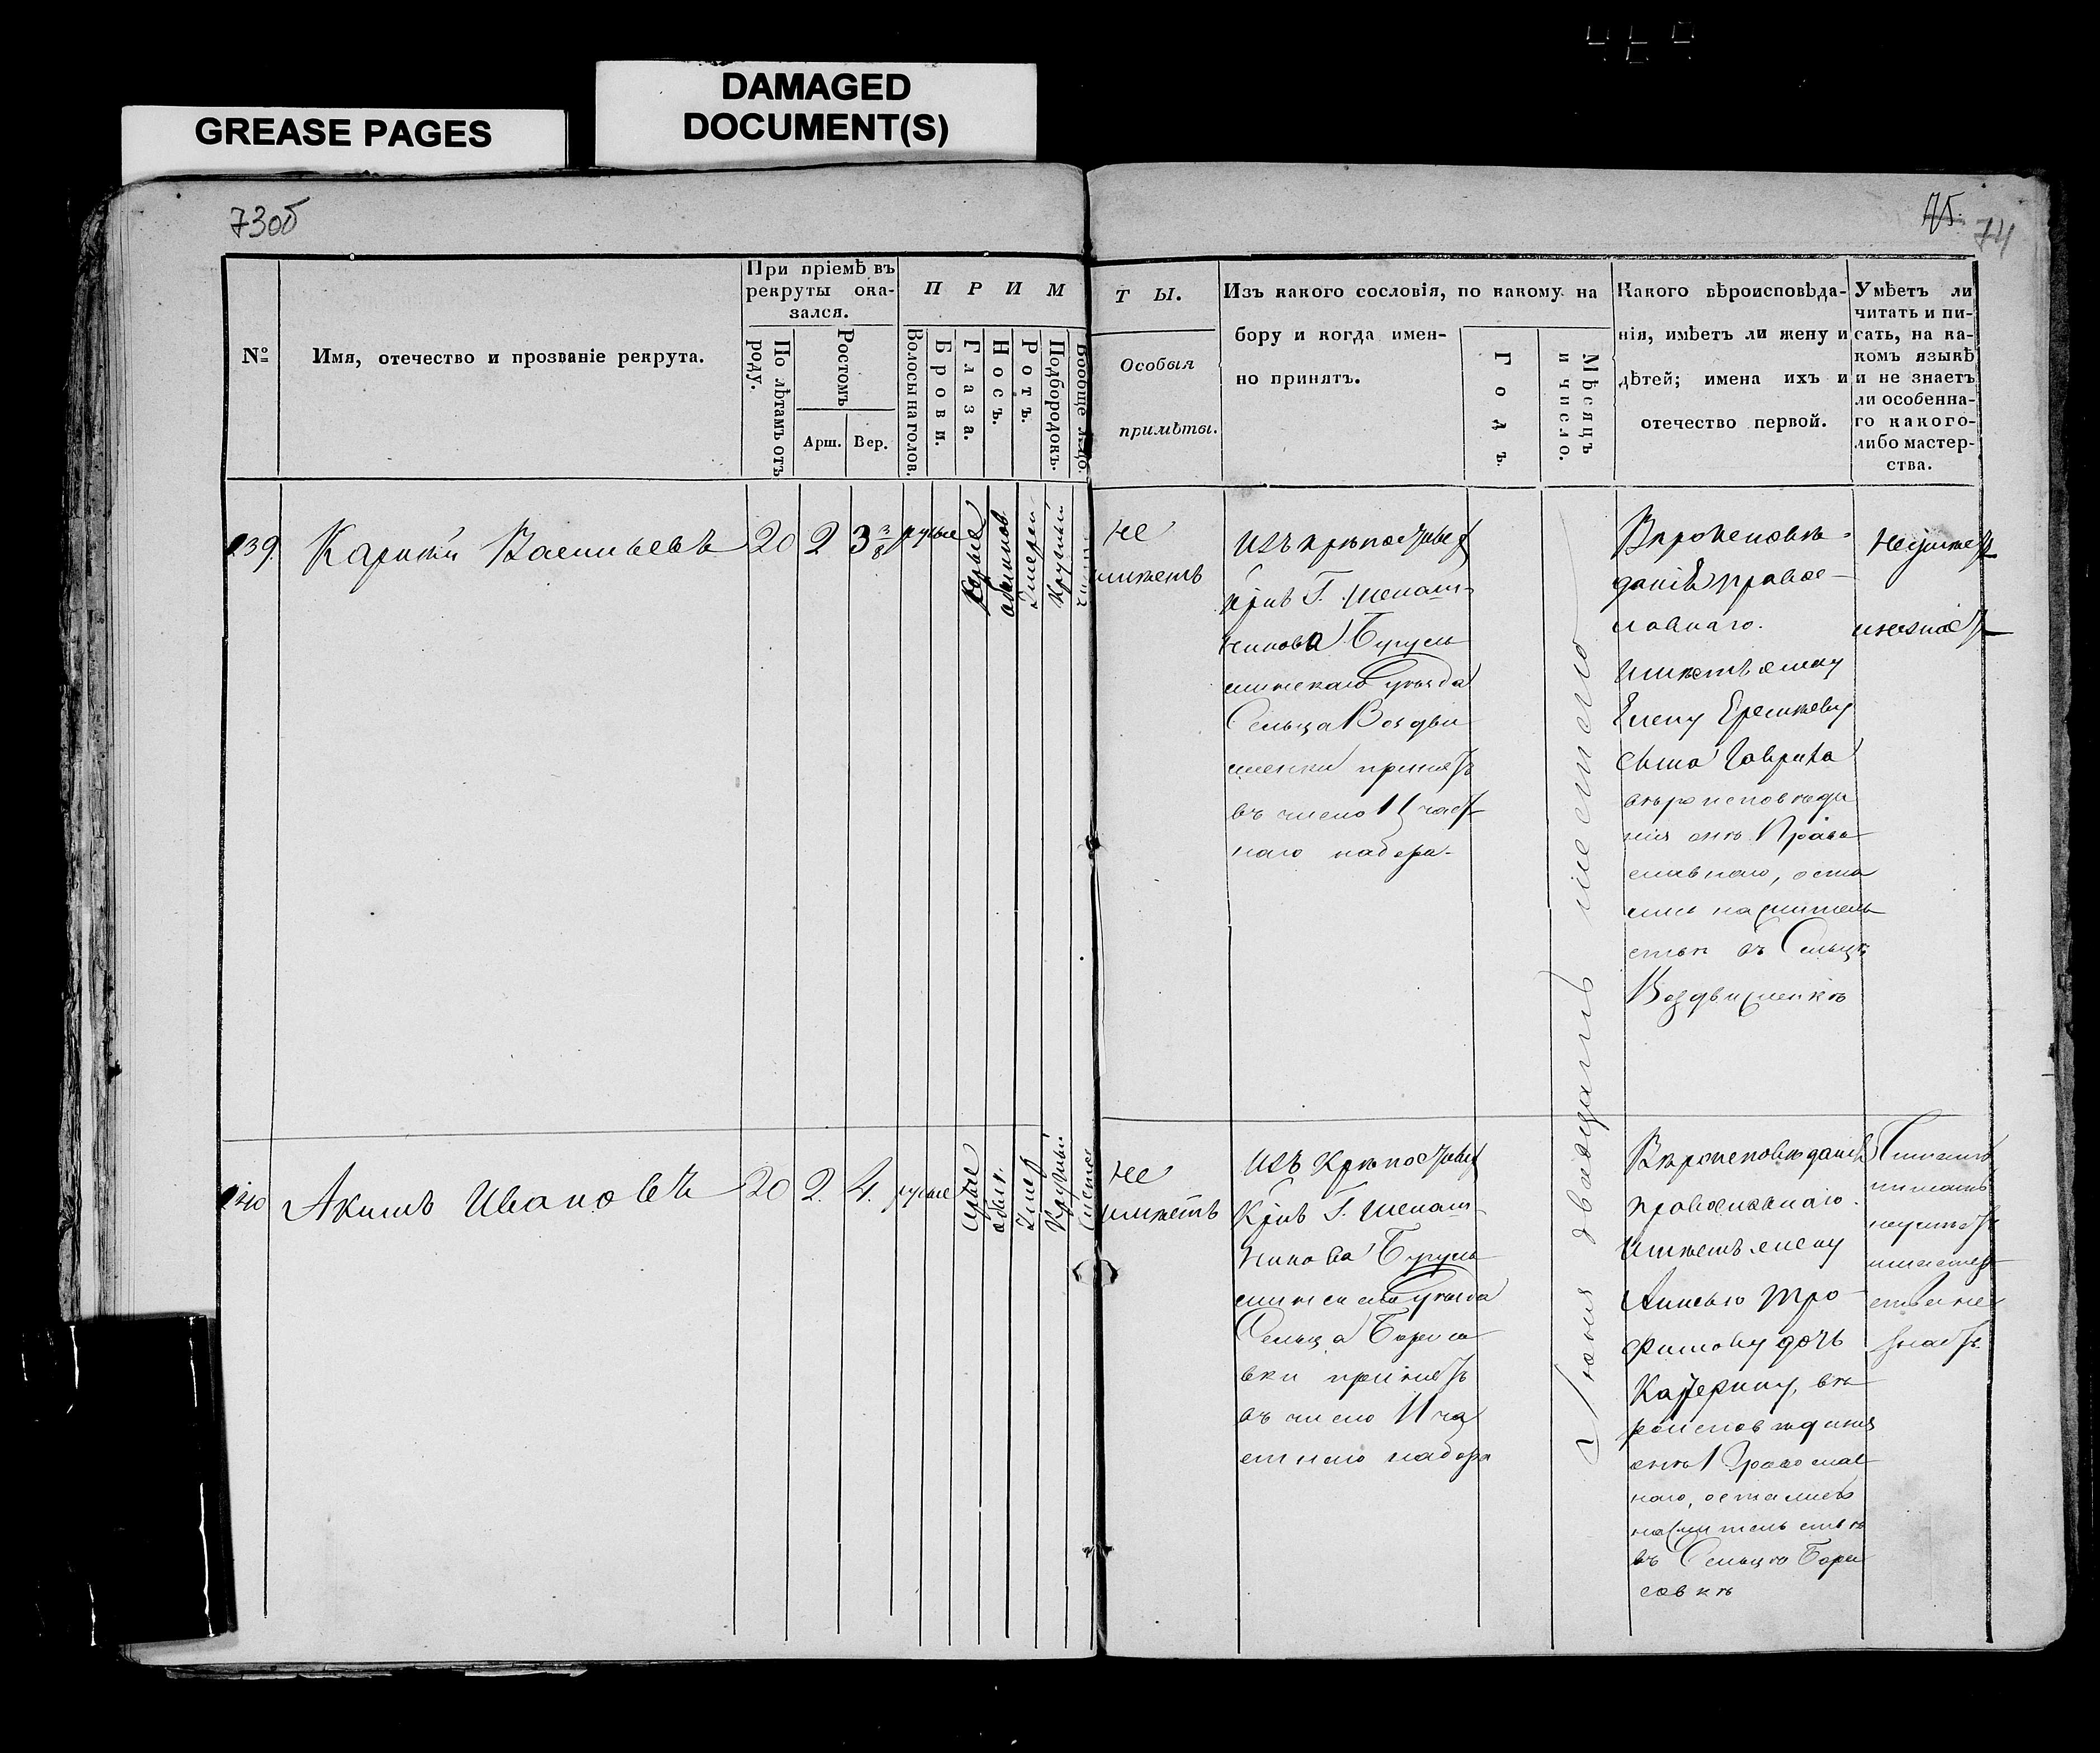 GREASE PAGES
DAMAGED
DOCUMENT(S)
73об
75.
74
№
Имя, отечество и прозваніе рекрута.
При пріемѣ въ
рекруты ока-
зался.
По лѣтамъ отъ
роду.
Ростомъ
Арш.
Вер.
ПРИМ
Волосы на голов.
Брови.
Глаза.
Носъ.
Ротъ.
Подбородокъ.
Вообще лицо.
ТЫ.
Особыя
примѣты.
Изъ какого сословія, по какому на
бору и когда имен-
но принятъ.
Годъ.
Мѣсяцъ
и число.
Какого вѣроисповѣда-
нія, имѣетъ ли жену и
дѣтей; имена ихъ и
отечество первой.
Умѣетъ ли
читать и пи-
сать, на ка-
комъ языкѣ
и не знаетъ
ли особенна-
го какого-
либо мастер-
ства.
139.
Васильевъ
20
2
3 3/8
русые
сѣрые
круглый
не
имѣетъ
Изъ крѣпостныхъ
крпв Г.
Бугуль
минскаго уѣзда
Сельца Воздви
женки принятъ
въ число 11 част
наго набора.
Вѣроисповѣ-
данія правос-
лавнаго.
Имѣетъ жену
Елену Еремѣеву
сына Гаврила
вѣроисповѣда
нія онѣ Право
славнаго, оста
лись на житель
ствѣ въ Сельцѣ
Воздвиженкѣ
Неумѣетъ
незнаетъ
Іюня двадцать шестаго
140
Акимъ Ивановъ
20
2.
4.
русые
сѣрые
обыкн.
умѣр
круглый
чистое
не
имѣетъ
Изъ крѣпостныхъ
Крпв Г.
Бугуль
минскаго уѣзда
Сельца Борисо
вки принятъ
въ число 11 ча
стнаго набора
Вѣроисповѣданія
православнаго.
Имѣетъ жену
Анисью Тро
фимову дочь
Катерину, вѣ
роисповѣданія
онѣ Православ
наго, остались
на жительствѣ
въ Сельцѣ Бори
совкѣ
Читать
писать
неумѣетъ
имастер
ства не
знаетъ.